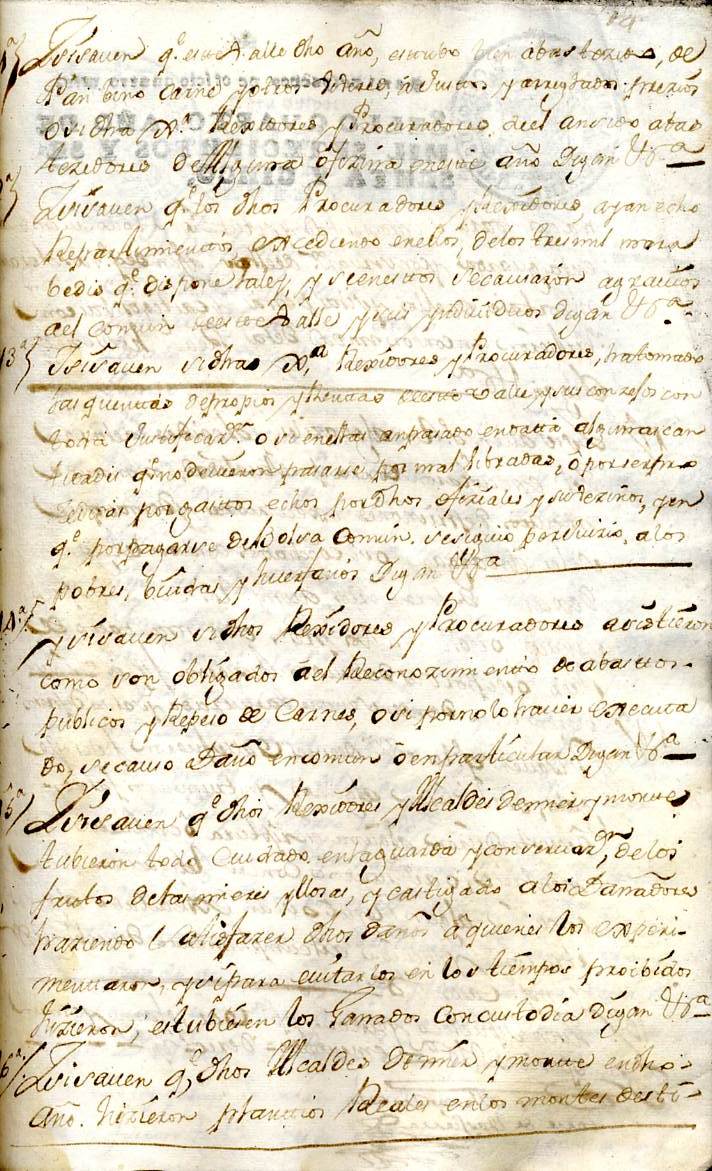 14
Y si saven q.e este Valle dho año, estubo bien abastezido, de
Pan bino Carne y otros viveres, a justos y arreglados prezios
o si dhos Rexidores y Procuradores, an sido abas
tezedores de Alguna ofizina en este año Digan Vª
Y si saven q.e los dhos Procuradores y Rexidores, ayan echo
Repartimientos excediendo en ellos, de los tres mil mara
bedis q.e dispone la ley, y si en estos se causaron agravios
a el comun de este Valle y sus yndividuos digan Vª
13ª Y si saven si dhos Rexidores y Procuradores, ha tomado
las quentas de propios y Rentas de este Valle y sus conzejos con
toda Justificaz.n o si en ellas an pasado en data algunas can
tidades q.e no devieron pasarse por mal libradas, ô por ser
por gastos echos por dhos ofiziales y sus vezinos, y en
q.e por pagarse de la Bolsa Comun se siguio perjuizio, a los
pobres, biudas y huerfanos Digan Vª
14ª y si saven si dhos Rexidores y Procuradores asistieron
como son obligados a el Reconozimiento de abastos
publicos y Repeso de Carnes, o si por no lo haver executa
do, se causo Daño en comun ô en particular Digan Vª
15ª Y si saven q.e dhos Rexidores y Alcaldes de mier y monte
tubieron todo Cuidado en la guarda y conservaz.on de los
frutos de las mieses y llosas, y castigado a los Dañadores
haziendo satisfazer dhos daños a quienes los experi-
mentaron, y si para evitarlos en los tiempos proibidos
hizieron, estubiesen los Ganados con custodia digan Vª
16ª Y si saven q.e dhos Alcaldes de mier y monte en dho
año hizieron plantios Reales en los montes de st.-